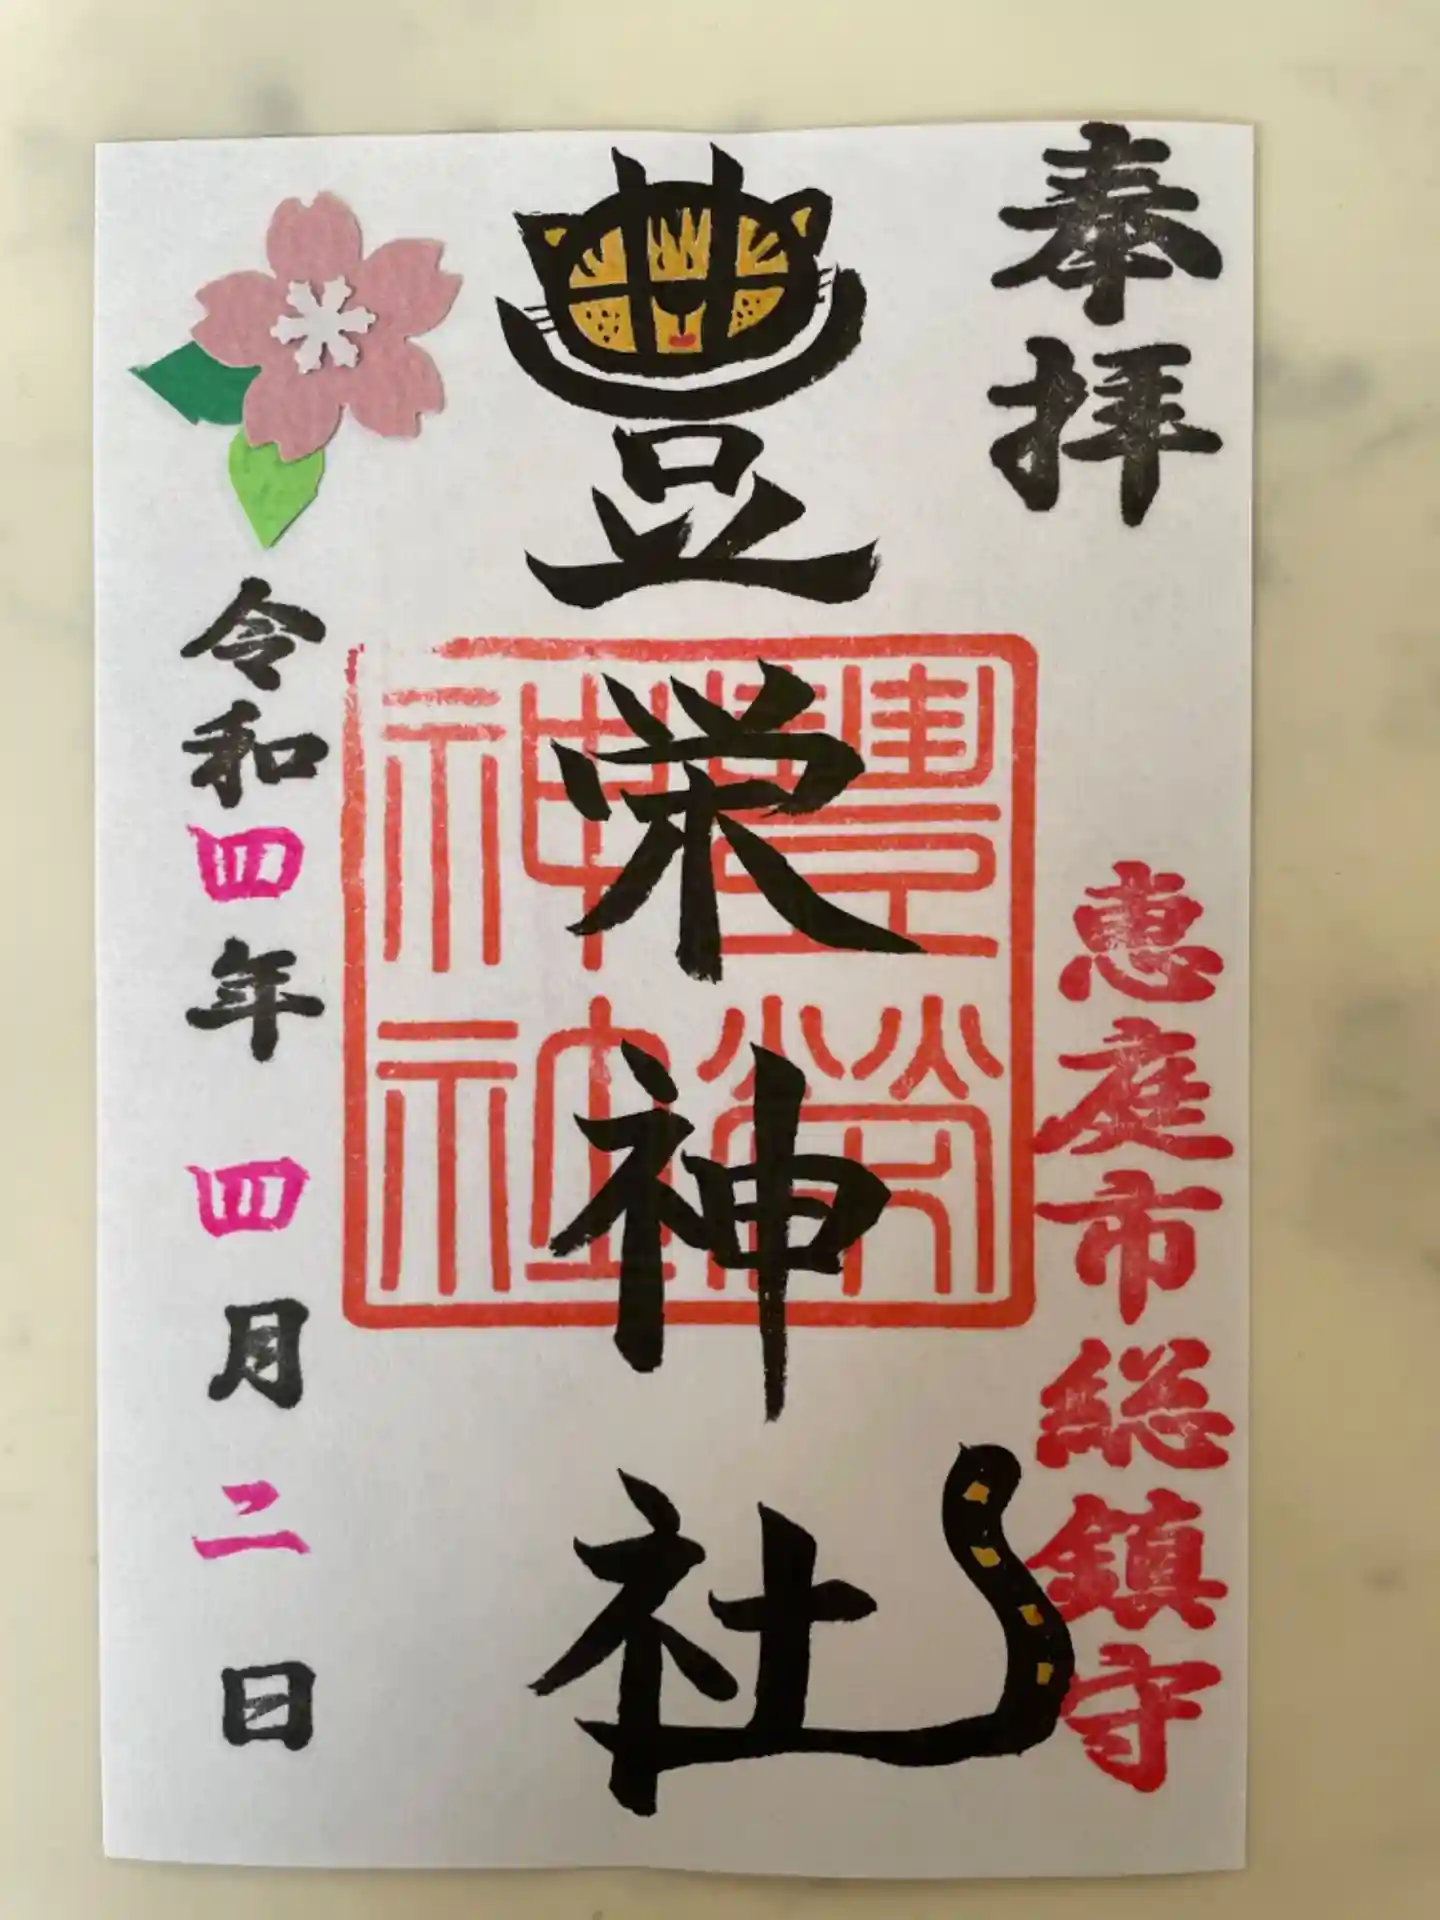 奉拝
恵庭市総鎮守
豊栄神社
豊栄神社
令和四年 四月二日